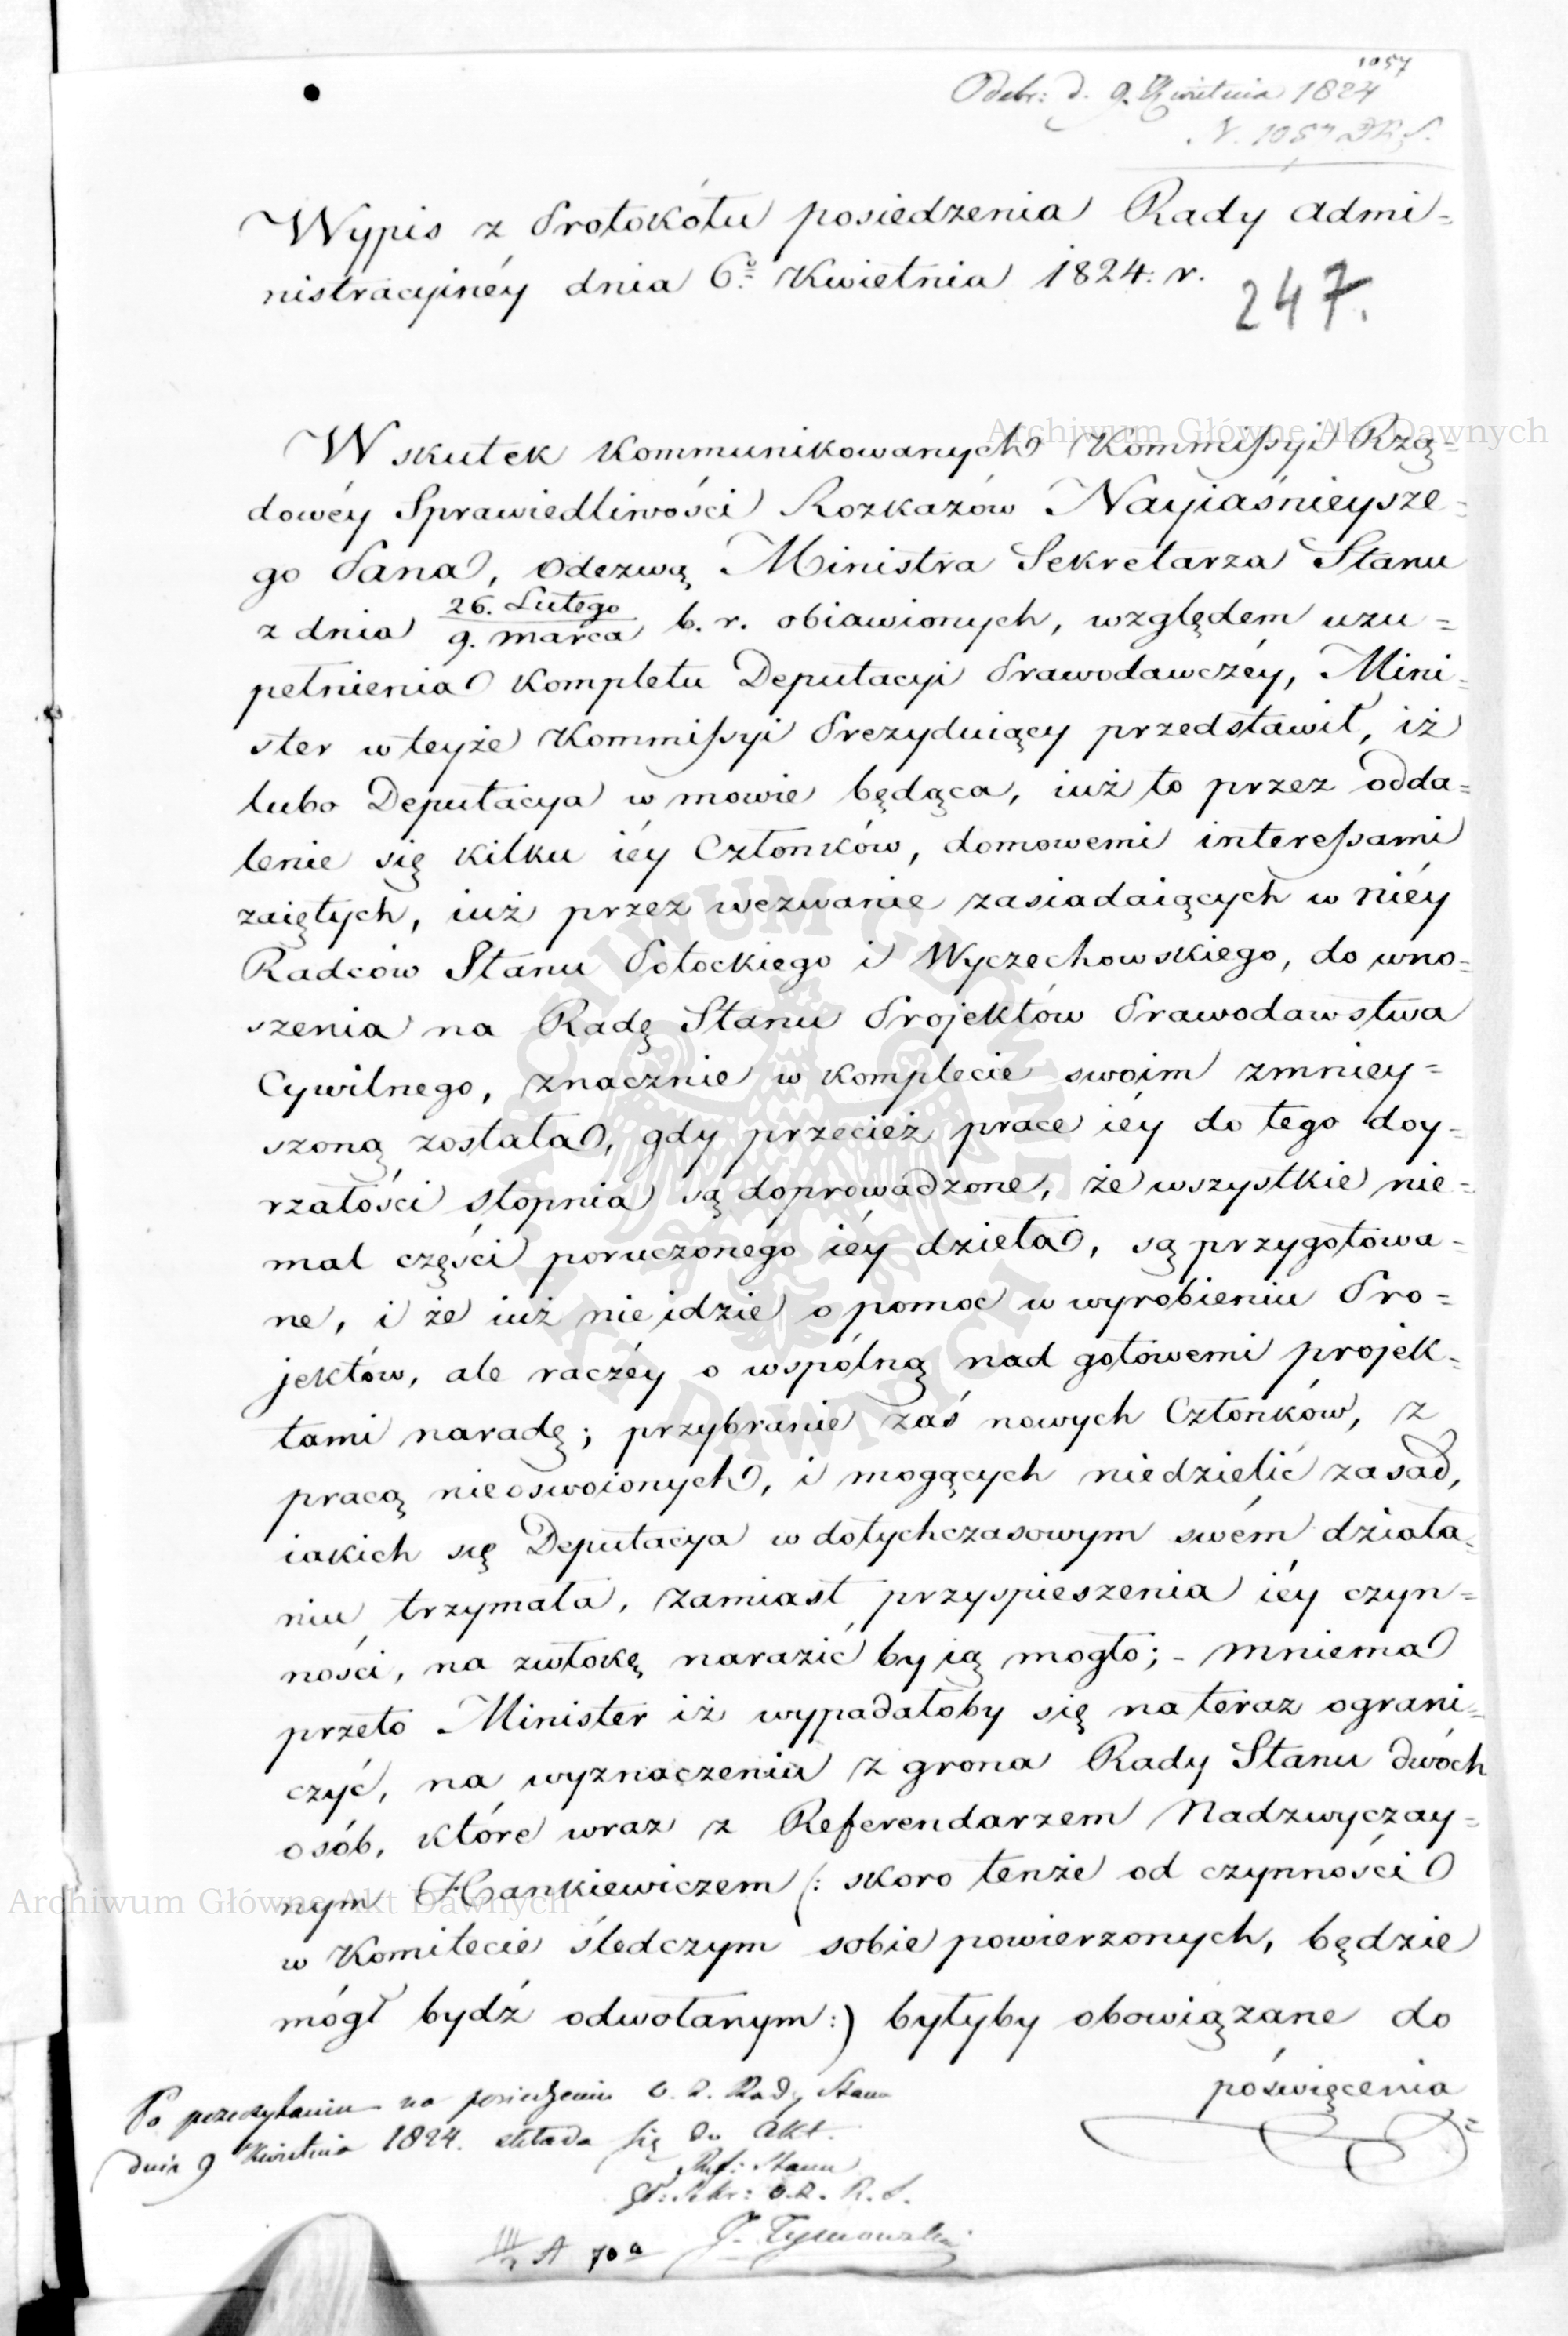 1057
Odebr: d. 9. Kwietnia 1824
N. 1057 D.R.S.
Wypis z Protokółu posiedzenia Rady Admi=
nistracyinéy dnia 6º Kwietnia 1824. r.
247.
W skutek kommunikowanych Kommissyi Rzą=
dowéy Sprawiedliwości Rozkazów Nayiaśnieysze=
go Pana, odezwą Ministra Sekretarza Stanu
z dnia 26. Lutego / 9. Marca b. r. obiawionych, względem uzu=
pełnienia kompletu Deputacyi Prawodawczéy, Mini=
ster w teyże Kommissyi Prezyduiący przedstawił, iż
lubo Deputacya w mowie będąca, iuż to przez odda=
lenie się kilku iéy Członków, domowemi interessami
zaiętych, iuż przez wezwanie zasiadaiących w niéy
Radców Stanu Potockiego i Wyczechowskiego, do wno=
szenia na Radę Stanu Projektów Prawodawstwa
Cywilnego, znacznie w komplecie swoim zmniey=
szoną została, gdy przecież prace iéy do tego doy=
rzałości stopnia są doprowadzone, że wszystkie nie=
mal części poruczonego iéy dzieła, są przygotowa=
ne, i że iuż nie idzie o pomoc w wyrobieniu Pro=
jektów, ale raczéy o wspólną nad gotowemi projek=
tami naradę; przybranie zaś nowych Członków, z
pracą nieoswoionych, i mogących niedzielić zasad,
iakich się Deputacya w dotychczasowym swém działa=
niu trzymała, zamiast przyspieszenia iéy czyn=
ności, na zwłokę narazić by ią mogło; - mniema
przeto Minister iż wypadałoby się na teraz ograni=
czyć, na wyznaczeniu z grona Rady Stanu dwóch
osób, które wraz z Referendarzem Nadzwyczay=
nym Hankiewiczem (: skoro tenże od czynności
w Komitecie śledczym sobie powierzonych, będzie
mógł bydź odwołanym :) byłyby obowiązane do
poświęcenia=
Po przeczytaniu na posiedzeniu O. Z. Rady Stanu
dnia 9 Kwietnia 1824. składa się do Akt.
Ref: Stanu
P: Sekr: O. Z. R. S.
J. Tymowski
A 70a
Archiwum Główne Akt Dawnych
ARCHIWUM GŁÓWNE AKT DAWNYCH
Archiwum Główne Akt Dawnych